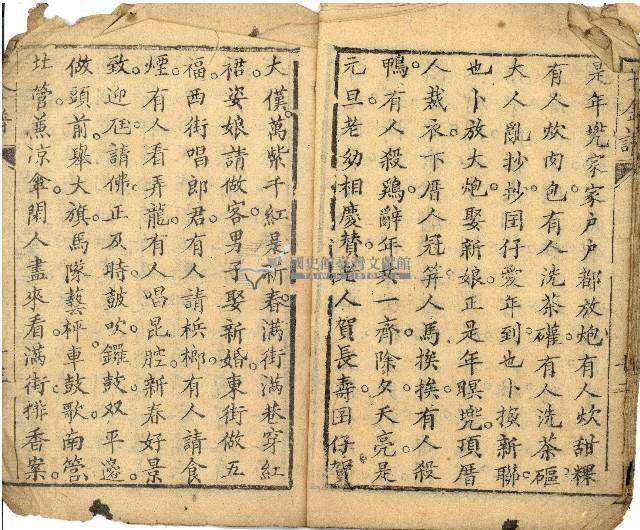 是年兠家家户户都放炮有人炊甜粿
有人炊肉包有人洗茶礶有人洗茶甌
大人亂抄抄囝仔愛年到也卜換新聯
也卜放大炮娶新娘正是年暝兠頂厝
人裁衣下厝人冠笄人馬挨挨有人殺
鴨有人殺鷄辭年一齊除夕天亮是
元旦老幼相慶人賀長壽囝仔賀
大漢萬紫千紅是新春满街满巷穿紅
裙姿娘請做客男子娶新婚東街做五
福西街唱郎君有人請梹榔有人請食
煙有人看弄龍有人唱昆腔新春好景
致迎尪請佛正及時鼓吹鑼鼓双平邊
做頭前舉大旗馬隊藝枰車鼓歌南管
北管兼凉傘閑人盡來看满街排香案
國史館臺灣文獻館